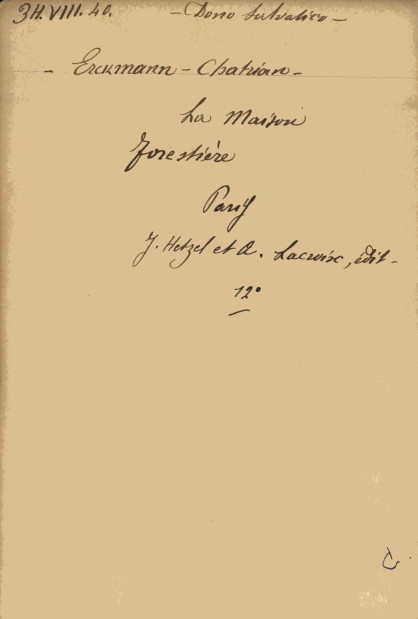 3H.VIII.40. - Dono Salvatico -
- Erckmann - Chatrian -
La Maison
forestière
Paris
J. Hetzel et A. Lacroix, édit -
12º